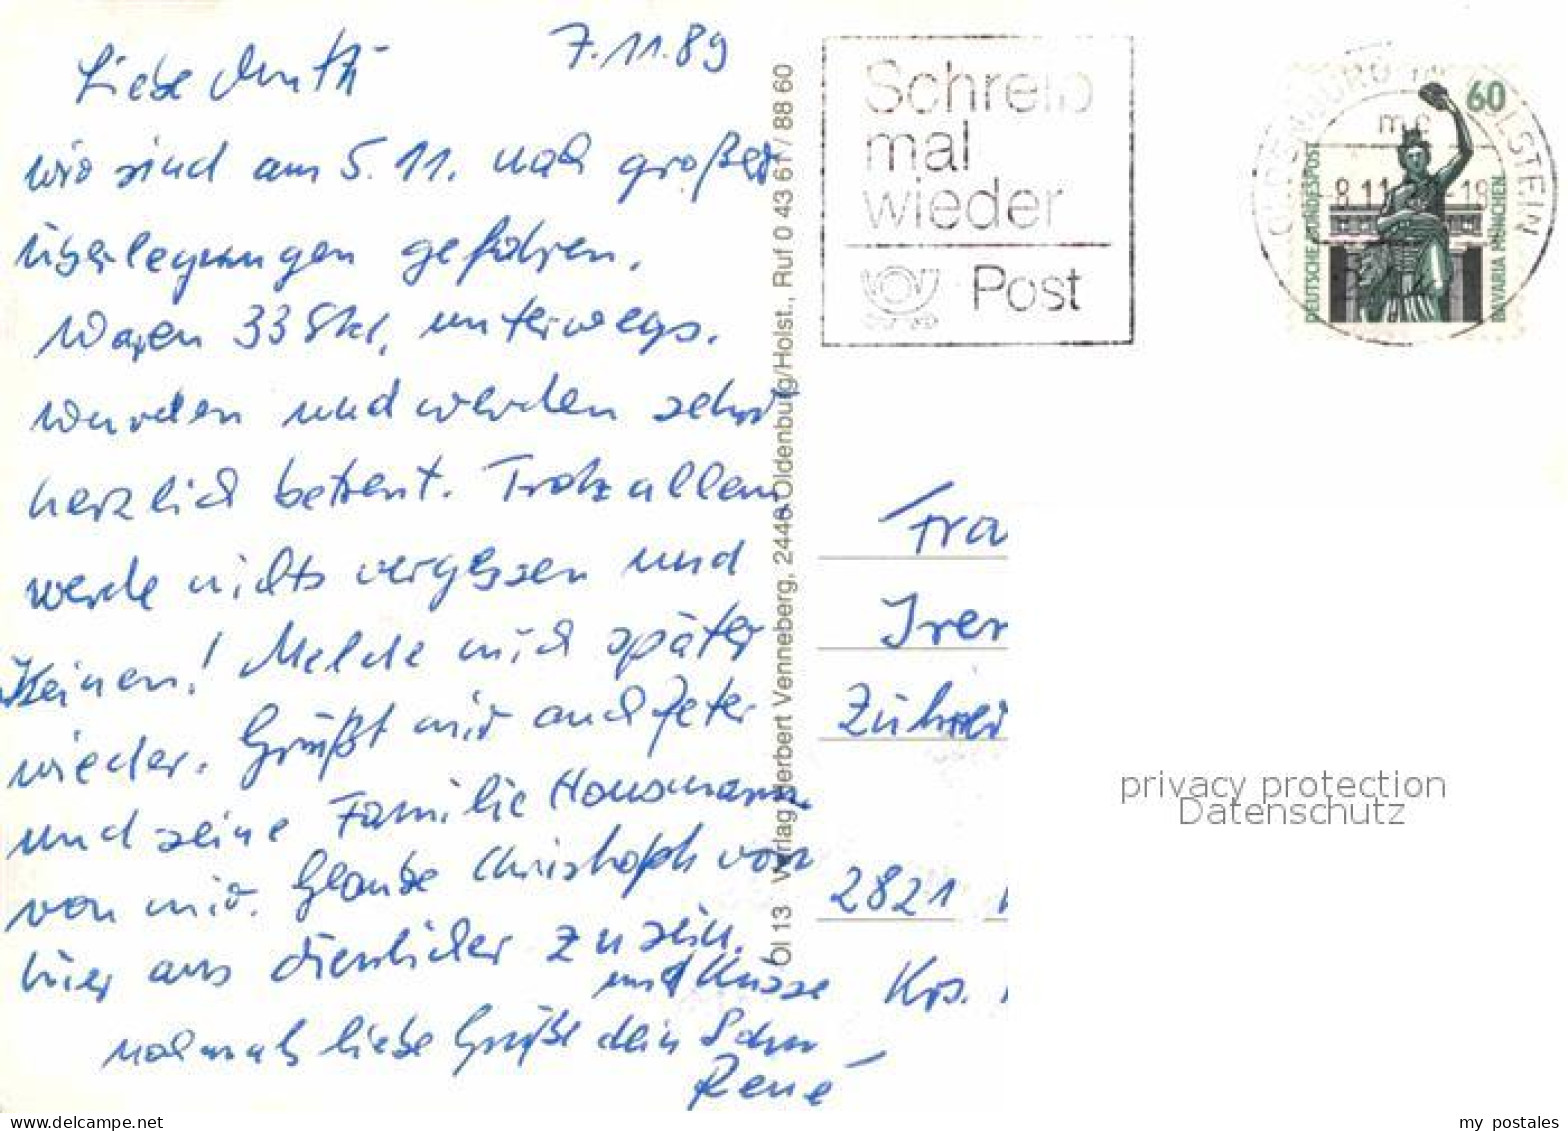 7.11.89
Liebe Mutti
wir sind am 5.11. nach großer
Überlegungen gefahren.
Waren 33 Std. unterwegs.
wurden und werden sehr
herzlich betreut. Trotz allem
werde nichts vergessen und
Keinen! Melde mich später
wieder. Grüßt mir auch Peter
und seine Familie
von mir. Glaube Christoph von
hier aus dienlicher zu sein.
nochmals liebe Grüße und Küsse
dein Sohn
René
Öl 13 Verlag Herbert Venneberg, 2440 Oldenburg/Holst., Ruf 0 43 61 / 88 60
Schreib
mal
wieder
Post
OLDENBURG IN HOLSTEIN
mc
8.11. -19
60
DEUTSCHE BUNDESPOST
BAVARIA MÜNCHEN
Fra
Iren
2821
Krs.
privacy protection
Datenschutz
my postales
www.delcampe.net